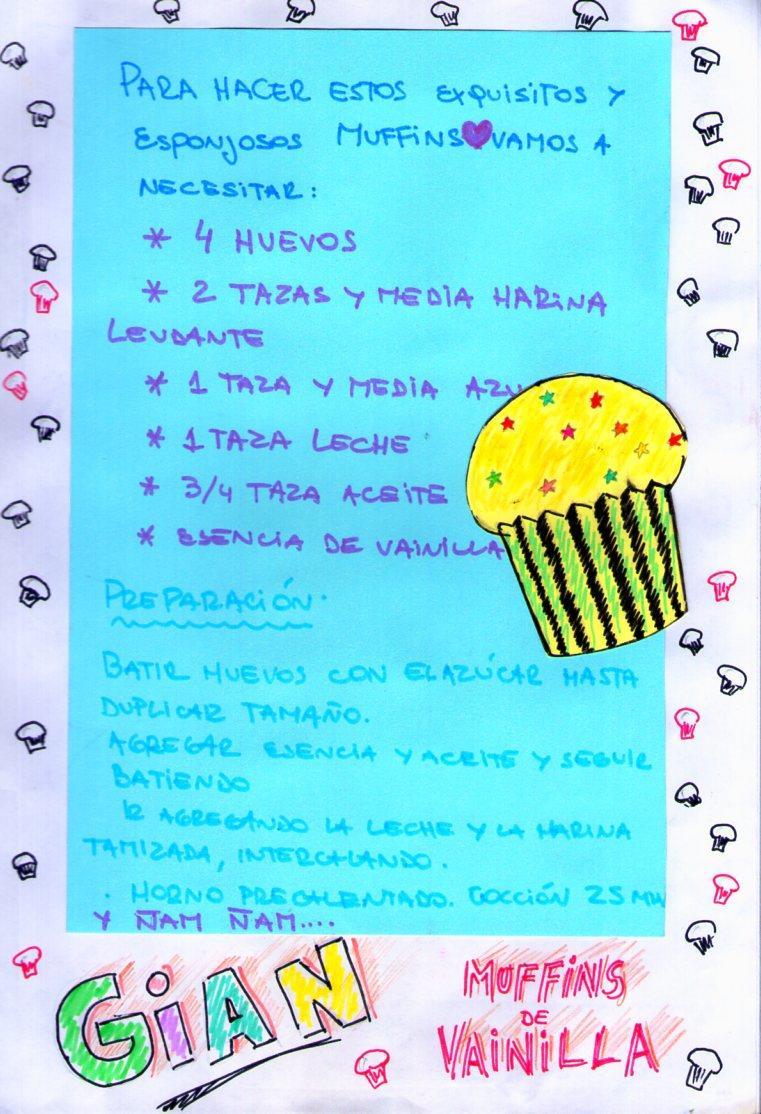 PARA HACER ESTOS EXQUISITOS Y
ESPONJOSOS MUFFINS VAMOS A
NECESITAR:
* 4 HUEVOS
* 2 TAZAS Y MEDIA HARINA
LEUDANTE
* 1 TAZA Y MEDIA AZU
* 1 TAZA LECHE
* 3/4 TAZA ACEITE
* ESENCIA DE VAINILLA
PREPARACIÓN.
BATIR HUEVOS CON EL AZÚCAR HASTA
DUPLICAR TAMAÑO.
AGREGAR ESENCIA Y ACEITE Y SEGUIR
BATIENDO
IR AGREGANDO LA LECHE Y LA HARINA
TAMIZADA, INTERCALANDO.
. HORNO PRECALENTADO. COCCIÓN 25 MIN
Y ÑAM ÑAM....
GIAN
MUFFINS
DE
VAINILLA